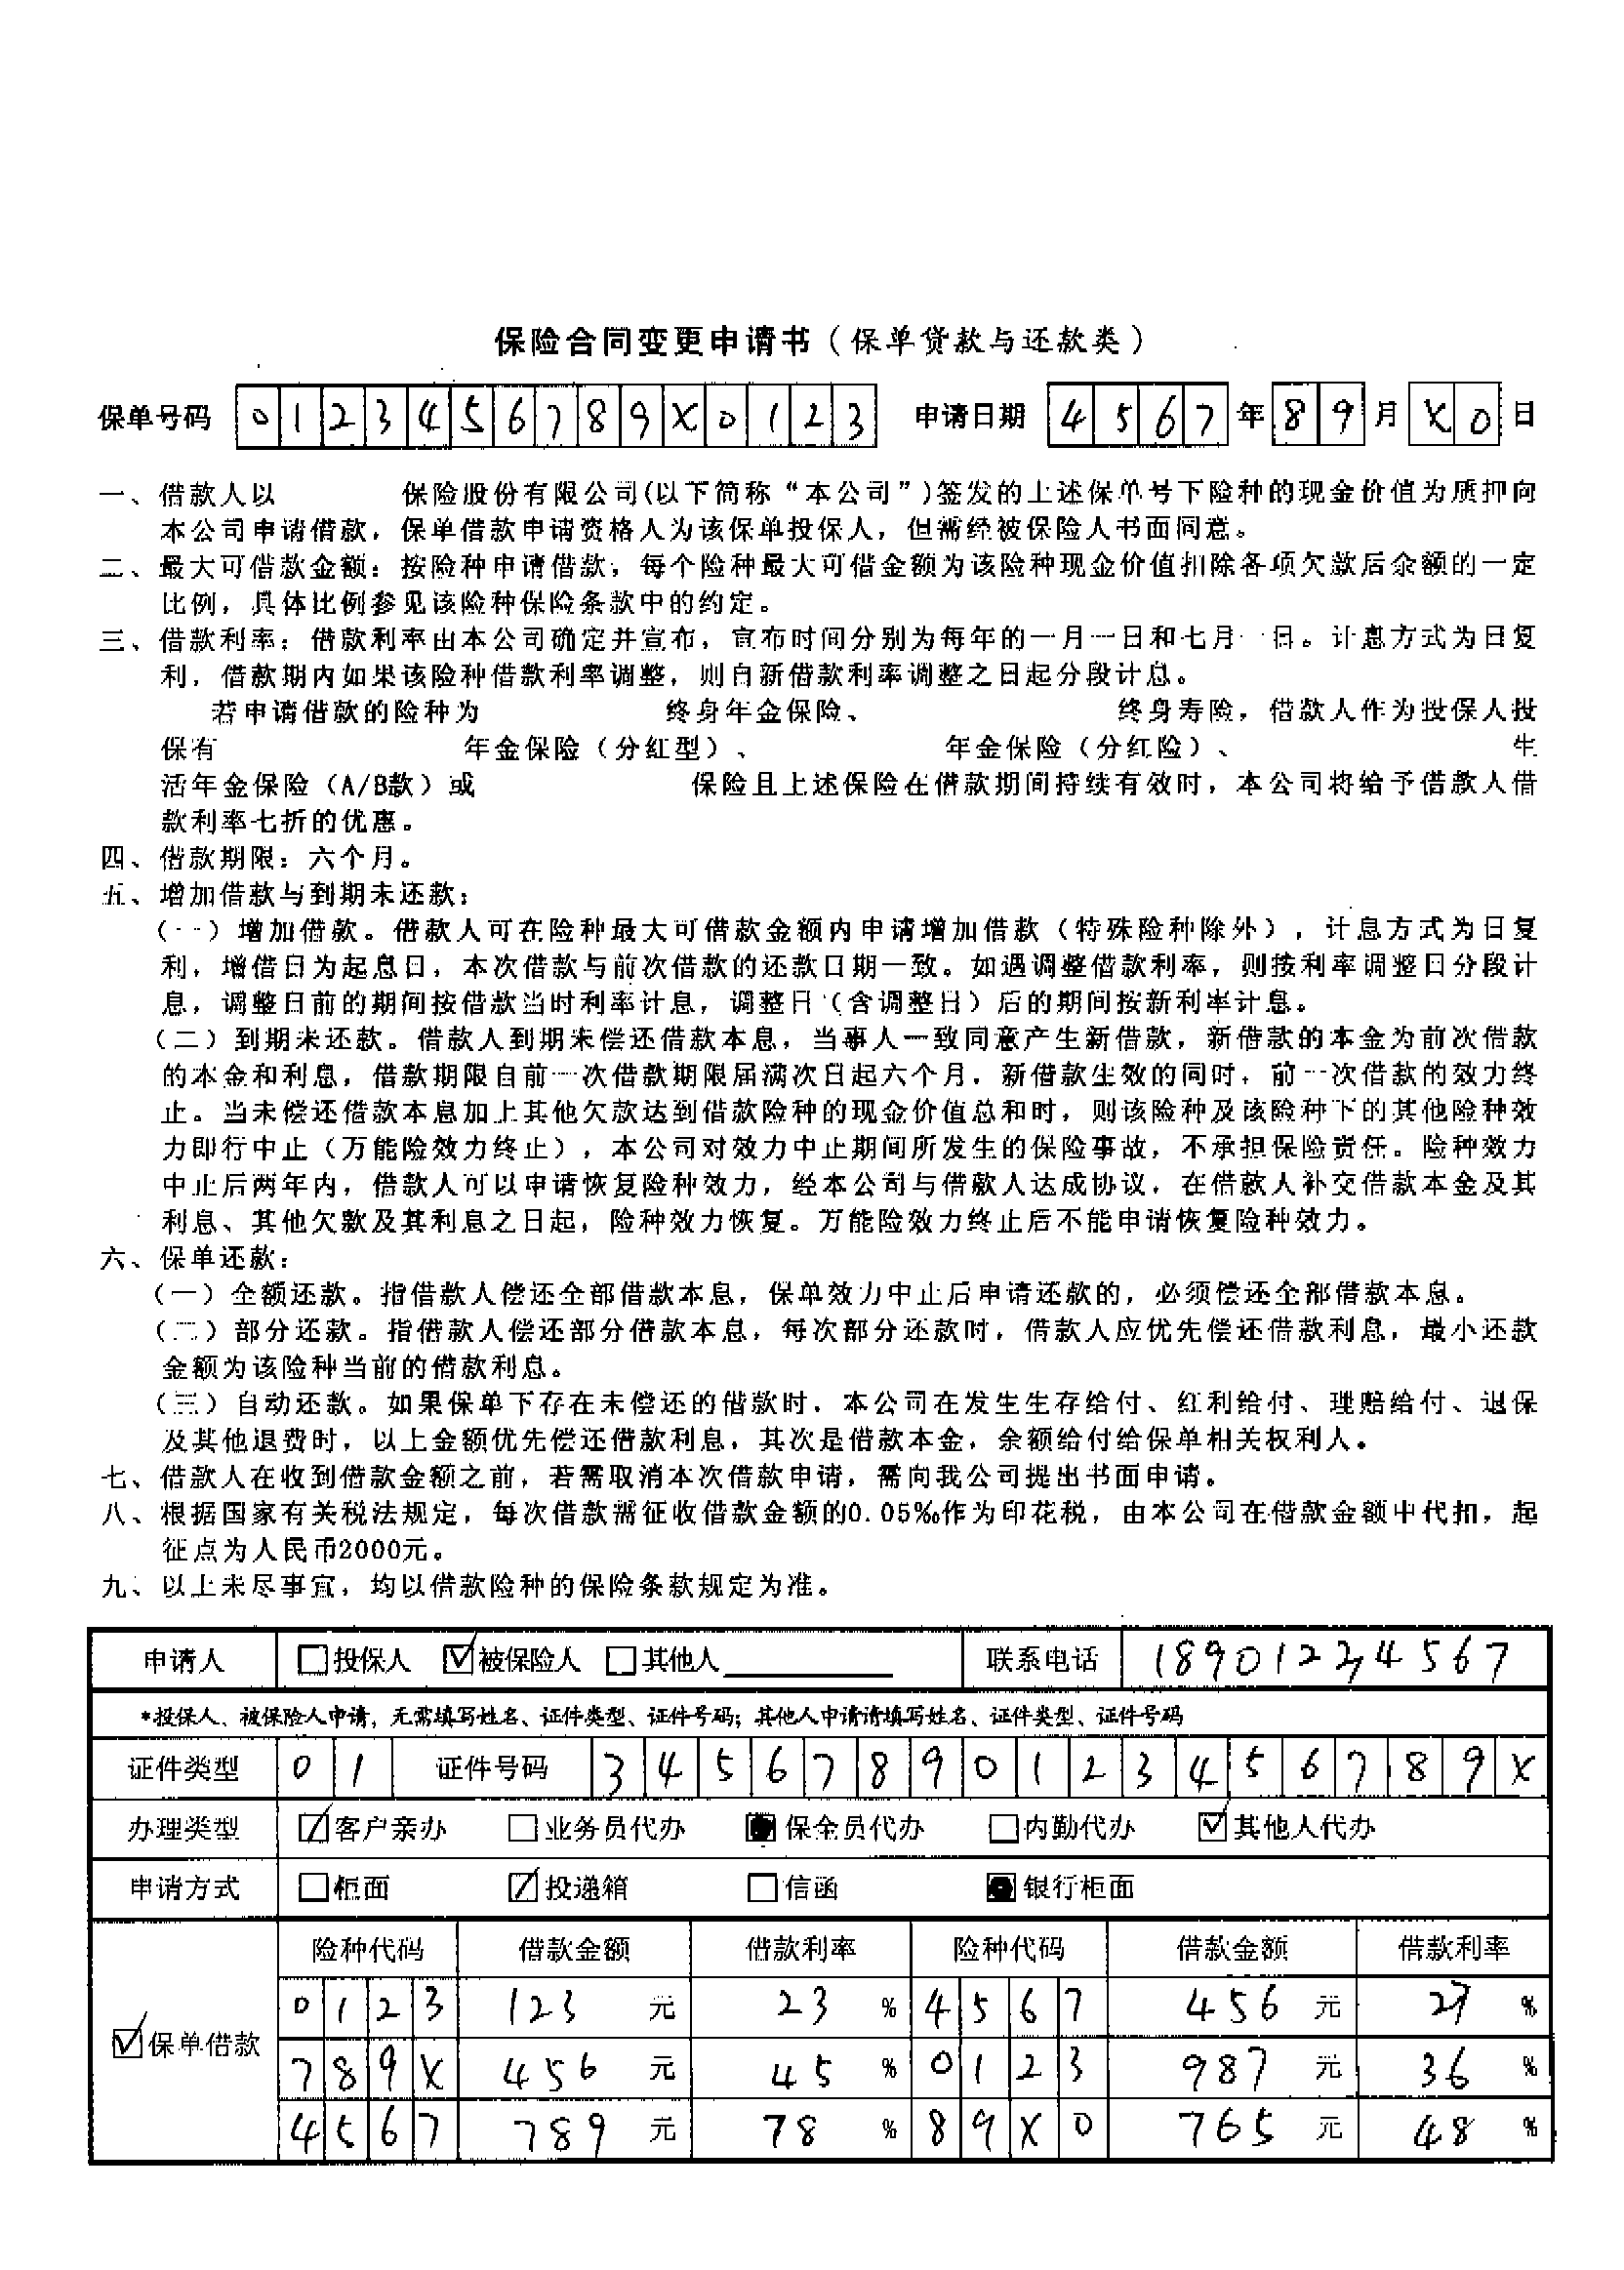 保险合同变更申请书（保单贷款与还款类）
保单号码 0 1 2 3 4 5 6 7 8 9 X 0 1 2 3 申请日期 4 5 6 7 年 8 9 月 X 0 日
一、借款人以 保险股份有限公司(以下简称“本公司”)签发的上述保单号下险种的现金价值为质押向
本公司申请借款，保单借款申请资格人为该保单投保人，但需经被保险人书面同意。
二、最大可借款金额：按险种申请借款，每个险种最大可借金额为该险种现金价值扣除各项欠款后余额的一定
比例，具体比例参见该险种保险条款中的约定。
三、借款利率：借款利率由本公司确定并宣布，宣布时间分别为每年的一月一日和七月一日。计息方式为日复
利，借款期内如果该险种借款利率调整，则自新借款利率调整之日起分段计息。
若申请借款的险种为 终身年金保险、 终身寿险，借款人作为投保人投
保有 年金保险（分红型）、 年金保险（分红险）、 生
活年金保险（A/B款）或 保险且上述保险在借款期间持续有效时，本公司将给予借款人借
款利率七折的优惠。
四、借款期限：六个月。
五、增加借款与到期未还款：
（一）增加借款。借款人可在险种最大可借款金额内申请增加借款（特殊险种除外），计息方式为日复
利，增借日为起息日，本次借款与前次借款的还款日期一致。如遇调整借款利率，则按利率调整日分段计
息，调整日前的期间按借款当时利率计息，调整日（含调整日）后的期间按新利率计息。
（二）到期未还款。借款人到期未偿还借款本息，当事人一致同意产生新借款，新借款的本金为前次借款
的本金和利息，借款期限自前一次借款期限届满次日起六个月，新借款生效的同时，前一次借款的效力终
止。当未偿还借款本息加上其他欠款达到借款险种的现金价值总和时，则该险种及该险种下的其他险种效
力即行中止（万能险效力终止），本公司对效力中止期间所发生的保险事故，不承担保险责任。险种效力
中止后两年内，借款人可以申请恢复险种效力，经本公司与借款人达成协议，在借款人补交借款本金及其
利息、其他欠款及其利息之日起，险种效力恢复。万能险效力终止后不能申请恢复险种效力。
六、保单还款：
（一）全额还款。指借款人偿还全部借款本息，保单效力中止后申请还款的，必须偿还全部借款本息。
（二）部分还款。指借款人偿还部分借款本息，每次部分还款时，借款人应优先偿还借款利息，最小还款
金额为该险种当前的借款利息。
（三）自动还款。如果保单下存在未偿还的借款时，本公司在发生生存给付、红利给付、理赔给付、退保
及其他退费时，以上金额优先偿还借款利息，其次是借款本金，余额给付给保单相关权利人。
七、借款人在收到借款金额之前，若需取消本次借款申请，需向我公司提出书面申请。
八、根据国家有关税法规定，每次借款需征收借款金额的0.05‰作为印花税，由本公司在借款金额中代扣，起
征点为人民币2000元。
九、以上未尽事宜，均以借款险种的保险条款规定为准。
申请人 投保人 被保险人 其他人 联系电话 18901234567
*投保人、被保险人申请，无需填写姓名、证件类型、证件号码；其他人申请请填写姓名、证件类型、证件号码
证件类型 0 1 证件号码 3 4 5 6 7 8 9 0 1 2 3 4 5 6 7 8 9 X
办理类型 客户亲办 业务员代办 保全员代办 内勤代办 其他人代办
申请方式 柜面 投递箱 信函 银行柜面
险种代码 借款金额 借款利率 险种代码 借款金额 借款利率
0 1 2 3 123 元 23 % 4 5 6 7 456 元 27 %
保单借款
7 8 9 X 456 元 45 % 0 1 2 3 987 元 36 %
4 5 6 7 789 元 78 % 8 9 X 0 765 元 48 %